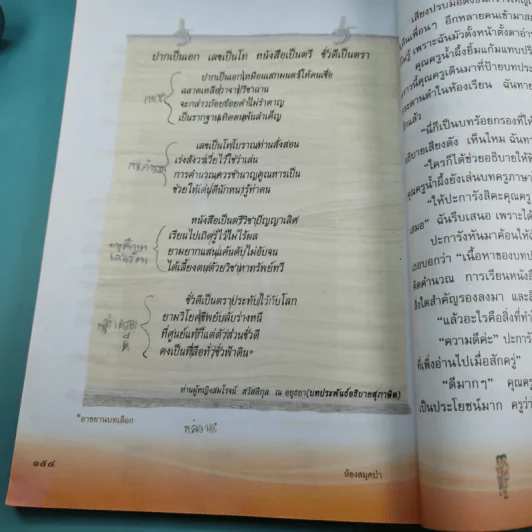 ปากเป็นเอก เลขเป็นโท หนังสือเป็นตรี ชั่วดีเป็นตรา
ปากเป็นเอกเหมือนเสกมนตร์ให้คนเชื่อ
ฉลาดเหลือวาจาปรีชาฉาน
จะกล่าวถ้อยร้อยคำไม่รำคาญ
เป็นรากฐานเทิดตนพ้นลำเค็ญ
เลขเป็นโทโบราณท่านสั่งสอน
เร่งสังวรเวี่ยไว้ใช่ว่าเล่น
การคำนวณควรชำนาญคูณหารเป็น
ช่วยให้เด่นดีนักหนารู้ท่าคน
หนังสือเป็นตรีวิชาปัญญาเลิศ
เรียนไปเถิดรู้ไว้ไม่ไร้ผล
ยามยากแสนแค้นคับไม่อับจน
ได้เลี้ยงตนด้วยวิชาหาทรัพย์ทวี
ชั่วดีเป็นตราประทับไว้กับโลก
ยามวิโยคชีพยับลับร่างหนี
ที่ศูนย์แท้ก็แต่ตัวส่วนชั่วดี
คงเป็นที่ลือทั่วชั่วฟ้าดิน*
ท่านผู้หญิงสมโรจน์ สวัสดิกุล ณ อยุธยา(บทประพันธ์อธิบายสุภาษิต)
*อาขยานบทเลือก
๑๕๔
ห้องสมุดป่า
เห็นเพื่อนๆ อีกหลายคนเข้ามา
กแล้ว
"นี่ก็เป็นบทร้อยกรองที่ให้
อธิบายเสียงดัง เห็นไหม ฉันท
"ใครก็ได้ช่วยอธิบายให้ฟัง
คุณครูน้ำผึ้งยังเล่นบทครูภาษา
"ให้ปะการังสิคะคุณครู
สมอ" ฉันรีบเสนอ เพราะได้
ปะการังหันมาค้อนให้ฉัน
เธอบอกว่า "เนื้อหาของบท
คิดคำนวณ การเรียนหนังสื
สิ่งใดสำคัญรองลงมา และสิ่
"แล้วอะไรคือสิ่งที่ทำ
"ความดีค่ะ" ปะการั
ที่เพิ่งอ่านไปเมื่อสักครู่"
"ดีมากๆ" คุณครู
เป็นประโยชน์มาก ครูว่า